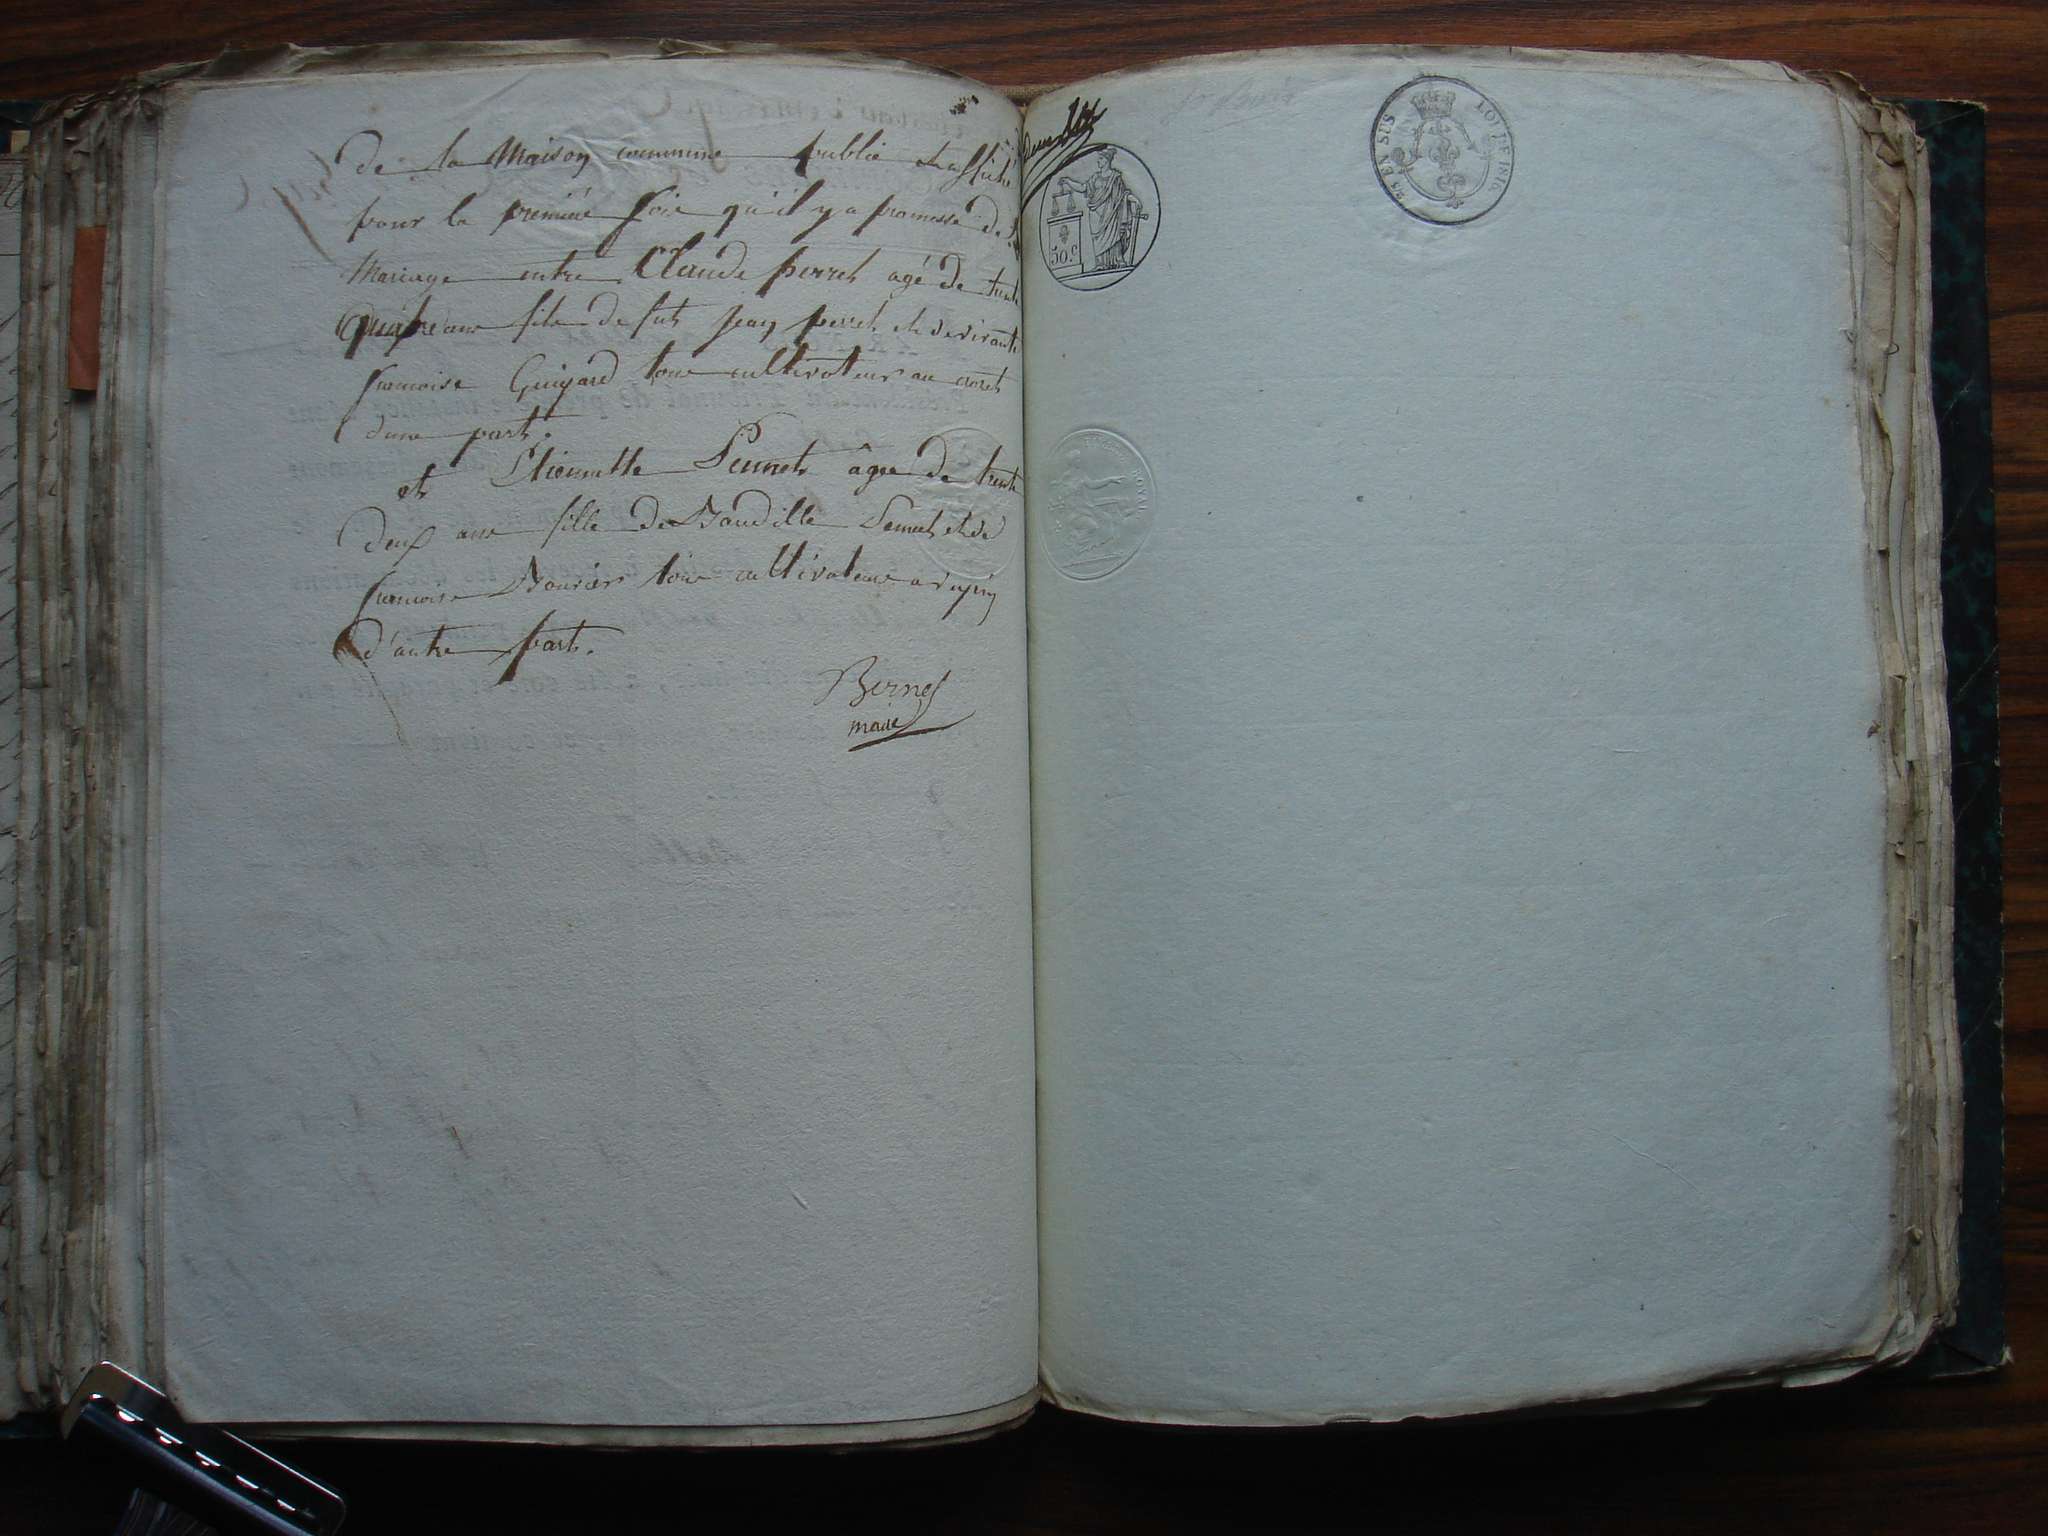 de la Maison commune publié et affiché
pour la première fois qu'il y a promesse de
Mariage entre Claude perret agé de trente
quatre ans fils de fut jean perret et de vivante
francoise Guigard tous cultivateur au
d'une part.
et Etiennette âgée de trente
deux ans fille de Baudille et de
francoise tous cultivateurs a
d'autre part.
Bernet
maire
deux
50 c
EN SUS
LOI DE 1816
ROYAL